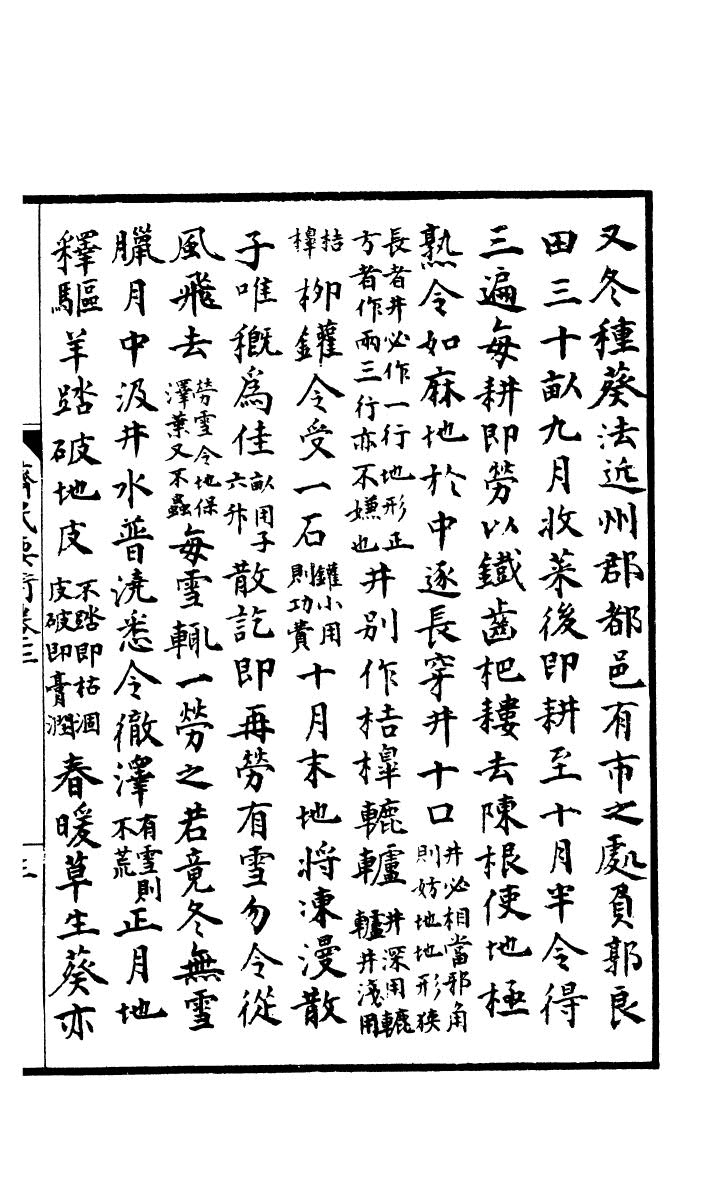 又冬種葵法近州郡都邑有市之處負郭良
田三十畝九月收菜後即耕至十月半令得
三遍每耕即勞以鐵齒杷耬去陳根使地極
熟令如麻地於中逐長穿井十口井必相當邪角則妨地地形狹
長者井必作一行地形正方者作兩三行亦不嫌也井別作桔槹轆轤井深用轆轤井淺用
桔槹柳鑵令受一石鑵小用則功費十月末地將凍漫散
子唯穊爲佳畝用子六升散訖即再勞有雪勿令從
風飛去勞雪令地保澤葉又不蟲每雪輒一勞之若竟冬無雪
臘月中汲井水普澆悉令徹澤有雪則不荒正月地
釋驅羊踏破地皮不踏即枯涸皮破即膏潤春暖草生葵亦
齊民要術卷三
三